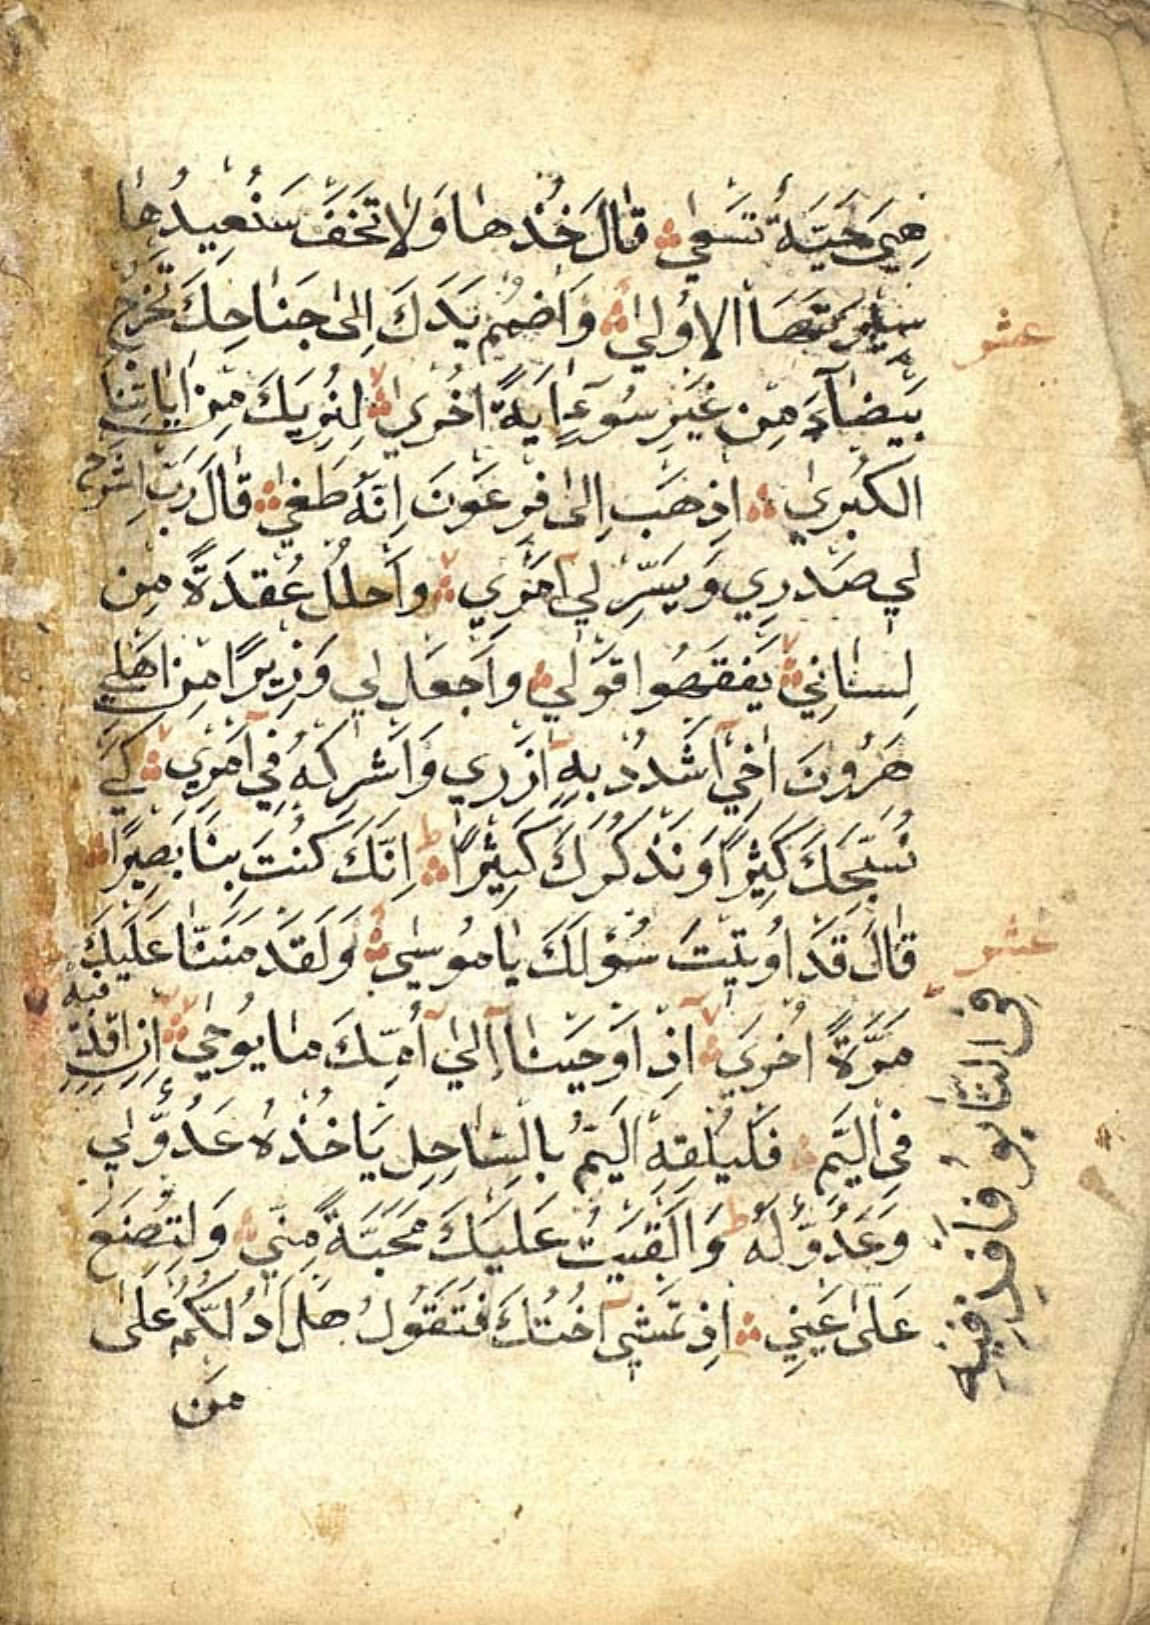 هِيَ حَيَّةٌ تَسْعىٰ قٰالَ خُذْهٰا وَلٰا تَخَفْ سَنُعِيدُهٰا
سِيرَتَهَا الاُولىٰ وَاضْمُمْ يَدَكَ اِلىٰ جَنٰاحِكَ تَخْرُجْ
عشر
بَيْضٰآءَ مِنْ غَيْرِ سُوءٍ اٰيَةً اُخْرىٰ لِنُرِيَكَ مِنْ اٰيٰاتِنَا
الكُبْرىٰ اِذْهَبْ اِلىٰ فِرْعَوْنَ اِنَّهُ طَغىٰ قٰالَ رَبِّ اشْرَحْ
لِي صَدْرِي وَيَسِّرْ لِيٓ اَمْرِي وَاحْلُلْ عُقْدَةً مِنْ
لِسٰانِي يَفْقَهُوا قَوْلِي وَاجْعَل لِي وَزِيرًا مِنْ اَهْلِي
هٰرُونَ اَخِيۤ اشْدُدْ بِهِٓ اَزْرِي وَاَشْرِكْهُ فِيٓ اَمْرِي كَيْ
نُسَبِّحَكَ كَثِيرًا وَنَذْكُرَكَ كَثِيرًا ط اِنَّكَ كُنْتَ بِنَا بَصِيرًا
قٰالَ قَدْ اُوتِيتَ سُؤْلَكَ يٰا مُوسىٰ وَلَقَدْ مَنَنّٰا عَلَيْكَ
عشر
مَرَّةً اُخْرىٰ اِذْ اَوْحَيْنٰآ اِلىٰٓ اُمِّكَ مٰا يُوحىٰ اَنِ اقْذِفِيهِ
فِي التّٰابُوتِ فَاقْذِفِيهِ
فِي اليَمِّ فَلْيُلْقِهِ اليَمُّ بِالسّٰاحِلِ يَاْخُذْهُ عَدُوٌّ لِي
وَعَدُوٌّ لَهُ ط وَاَلْقَيْتُ عَلَيْكَ مَحَبَّةً مِنِّي وَلِتُصْنَعَ
عَلىٰ عَيْنِي اِذْ تَمْشِيٓ اُخْتُكَ فَتَقُولُ هَلْ اَدُلُّكُمْ عَلىٰ
مَن